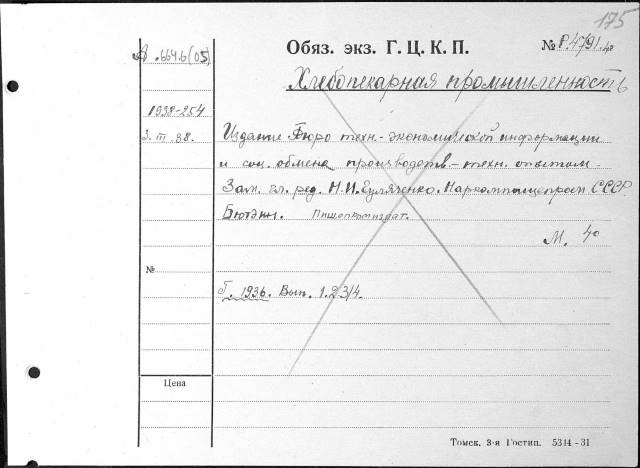 175
А .664.6(05)
Обяз. экз. Г. Ц. К. П.
№ Р.4791.40
Хлебопекарная промышленность
1938-254
3. III. 38.
Издание Бюро техн.-экономической информации
и соц. обмена производств.-техн. опытом.
Зам. гл. ред. Н.И. Наркомпищепром СССР
Бютэин. Пищепромиздат.
М. 40
№
Г. 1936. Вып. 1.2.3/4.
Цена
Томск. 3-я Гостип. 5314-31